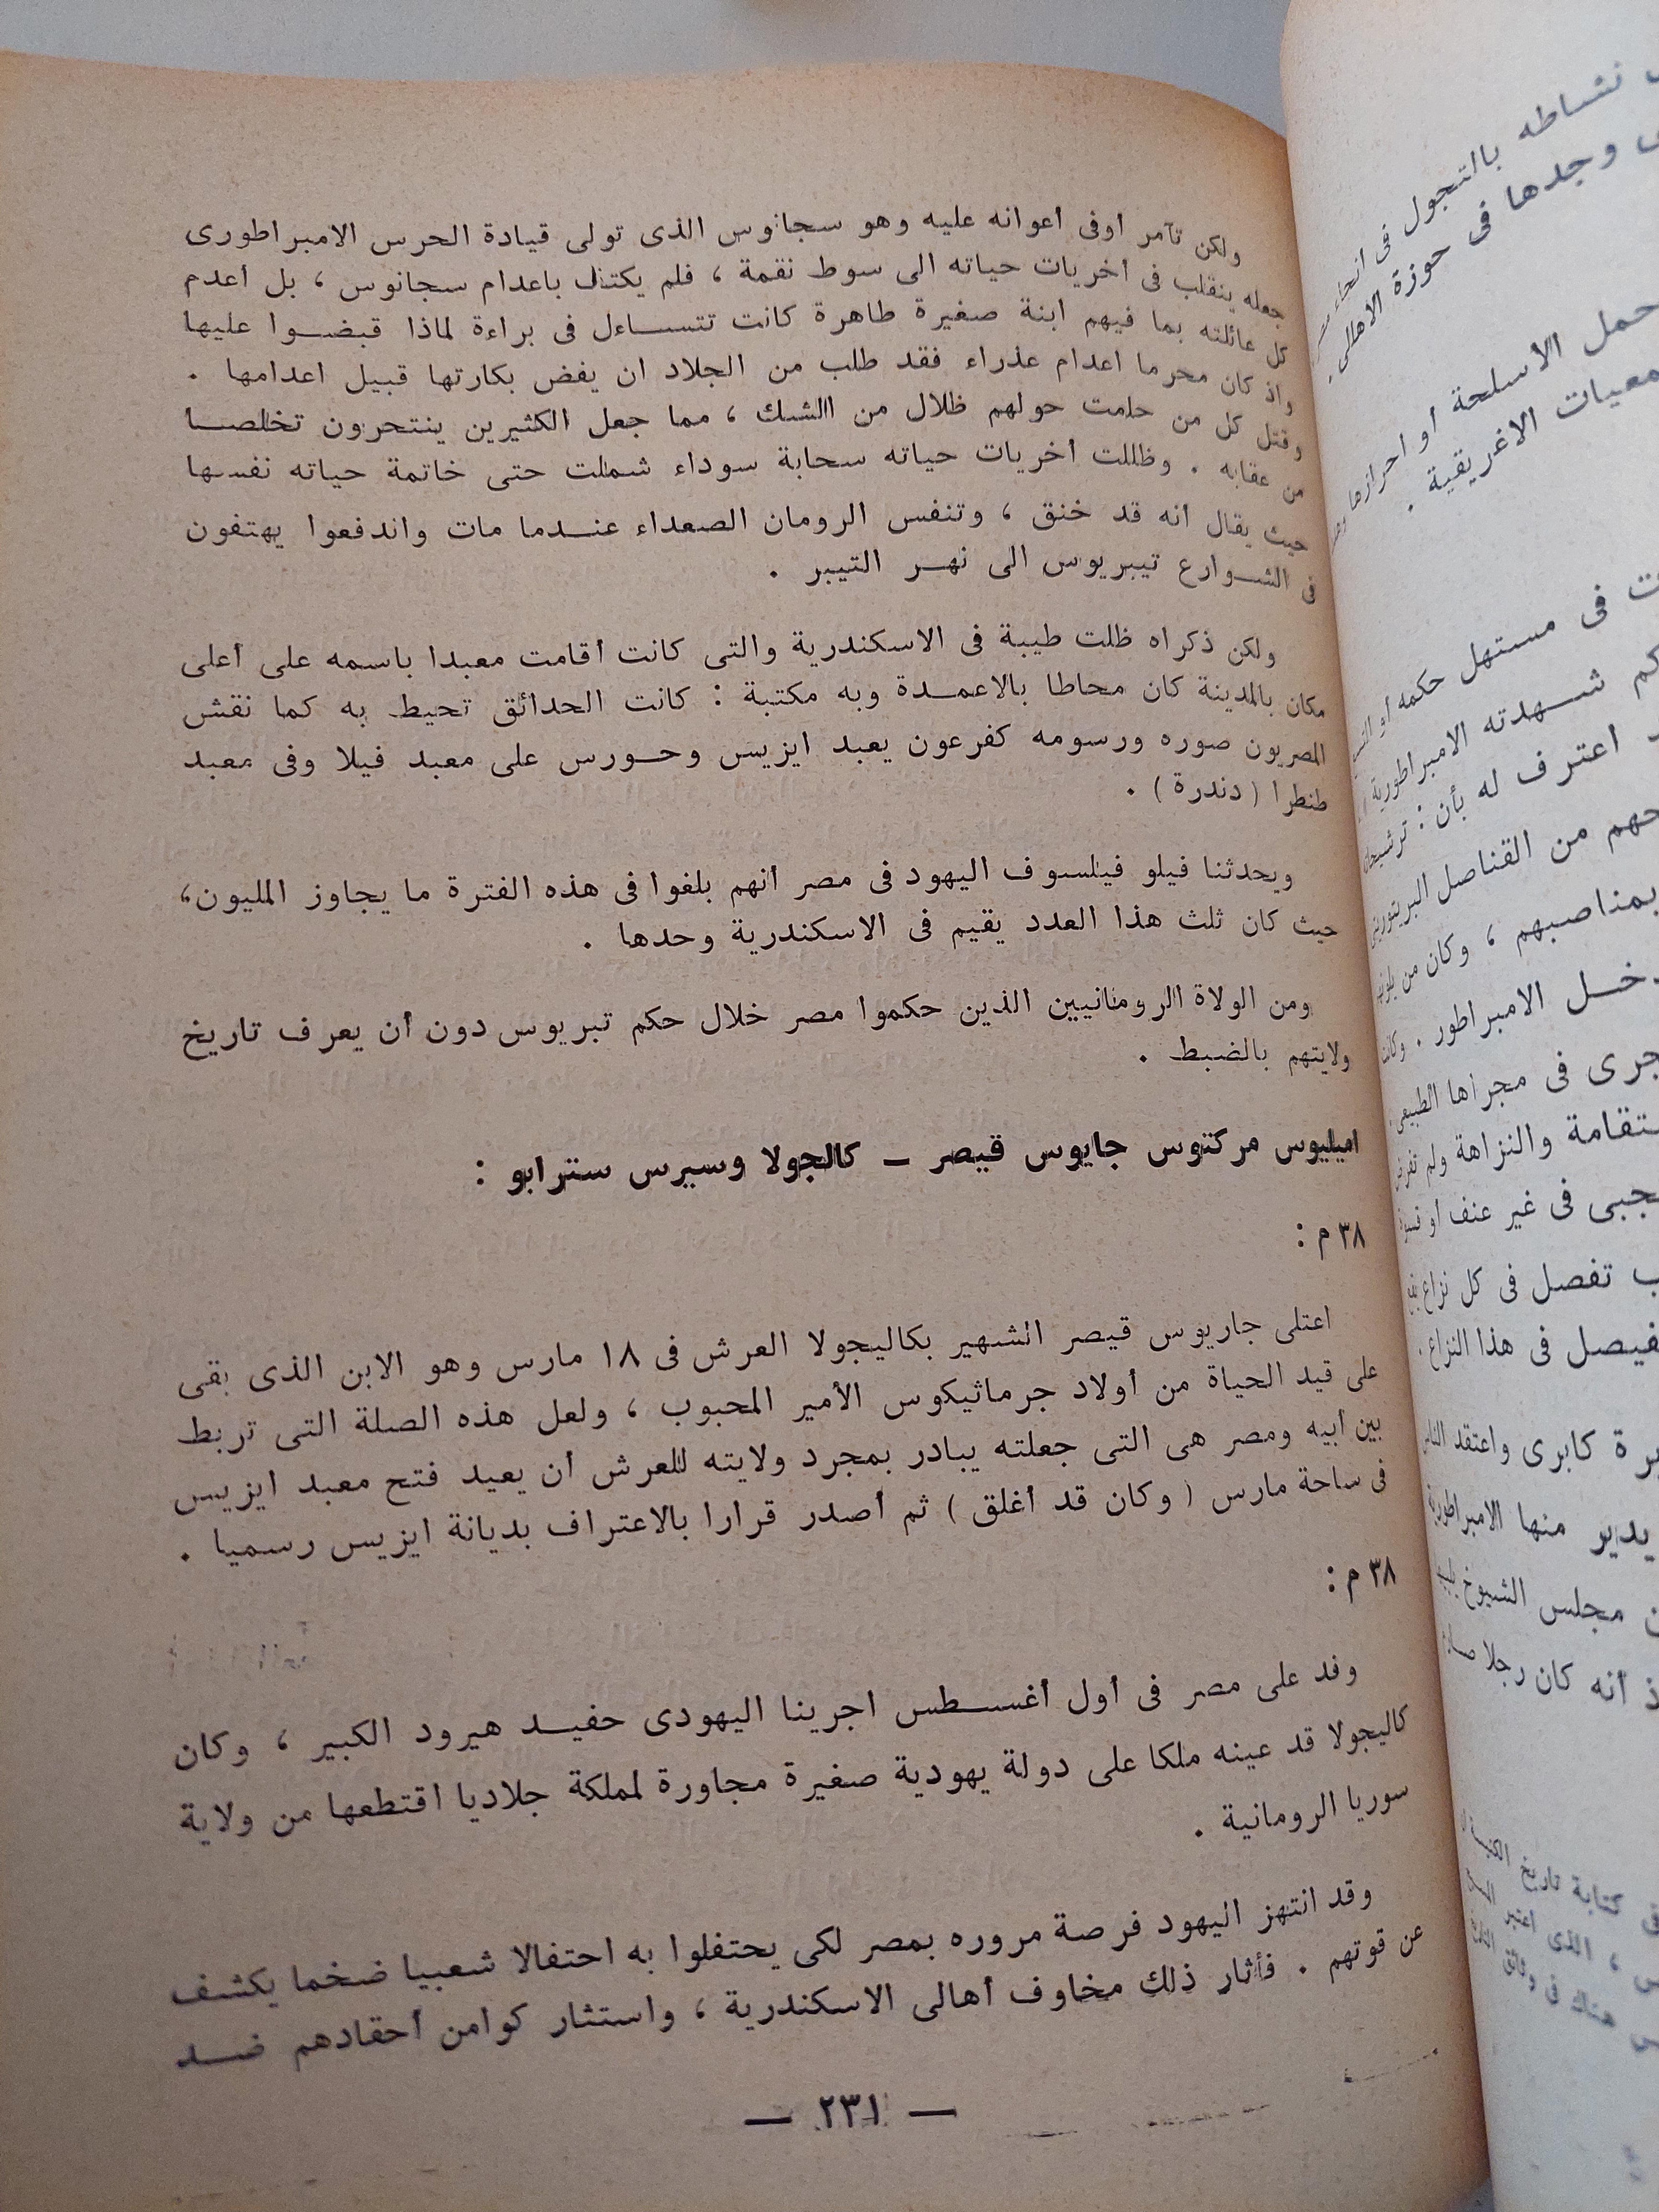 ولكن تآمر أوفى أعوانه عليه وهو سجانوس الذى تولى قيادة الحرس الامبراطورى
جعله ينقلب فى أخريات حياته الى سوط نقمة ، فلم يكتف باعدام سجانوس ، بل أعدم
كل عائلته بما فيهم ابنة صغيرة طاهرة كانت تتساءل فى براءة لماذا قبضوا عليها
واذ كان محرما اعدام عذراء فقد طلب من الجلاد ان يفض بكارتها قبيل اعدامها .
وقتل كل من حامت حولهم ظلال من الشك ، مما جعل الكثيرين ينتحرون تخلصا
من عقابه . وظللت أخريات حياته سحابة سوداء شملت حتى خاتمة حياته نفسها
حيث يقال انه قد خنق ، وتنفس الرومان الصعداء عندما مات واندفعوا يهتفون
فى الشوارع تيبريوس الى نهر التيبر .
ولكن ذكراه ظلت طيبة فى الاسكندرية والتى كانت أقامت معبدا باسمه على أعلى
مكان بالمدينة كان محاطا بالاعمدة وبه مكتبة : كانت الحدائق تحيط به كما نقش
المصريون صوره ورسومه كفرعون يعبد ايزيس وحورس على معبد فيلا وفى معبد
طنطرا ( دندرة ) .
ويحدثنا فيلو فيلسوف اليهود فى مصر أنهم بلغوا فى هذه الفترة ما يجاوز المليون،
حيث كان ثلث هذا العدد يقيم فى الاسكندرية وحدها .
ومن الولاة الرومانيين الذين حكموا مصر خلال حكم تبريوس دون أن يعرف تاريخ
ولايتهم بالضبط .
اميليوس مركتوس جايوس قيصر – كالجولا وسيرس سترابو :
٣٨ م :
اعتلى جاريوس قيصر الشهير بكاليجولا العرش فى ١٨ مارس وهو الابن الذى بقى
على قيد الحياة من أولاد جرماثيكوس الأمير المحبوب ، ولعل هذه الصلة التى تربط
بين أبيه ومصر هى التى جعلته يبادر بمجرد ولايته للعرش أن يعيد فتح معبد ايزيس
فى ساحة مارس ( وكان قد أغلق ) ثم أصدر قرارا بالاعتراف بديانة ايزيس رسميا .
٣٨ م :
وفد على مصر فى أول أغسطس اجرينا اليهودى حفيد هيرود الكبير ، وكان
كاليجولا قد عينه ملكا على دولة يهودية صغيرة مجاورة لمملكة جلاديا اقتطعها من ولاية
سوريا الرومانية .
وقد انتهز اليهود فرصة مروره بمصر لكى يحتفلوا به احتفالا شعبيا ضخما يكشف
عن قوتهم . فأثار ذلك مخاوف أهالى الاسكندرية ، واستثار كوامن أحقادهم ضد
— ٢٣١ —
نشاطه بالتجول فى انحاء
وجدها فى حوزة الاهالى .
حمل الأسلحة أو احرازها
الاغريقية .
فى مستهل حكمه أو
شهدته الامبراطورية
اعترف له بأن : ترشيحات
من القناصل
بمناصبهم ، وكان من
الامبراطور . وكانت
فى مجراها الطبيعى .
والنزاهة ولم
فى غير عنف أو قسوة
تفصل فى كل نزاع
فى هذا النزاع .
كابرى واعتقد الناس
يدير منها الامبراطورية
مجلس الشيوخ
أنه كان رجلا
كتابة تاريخ
، الذى اعتبر
هناك فى وثائق